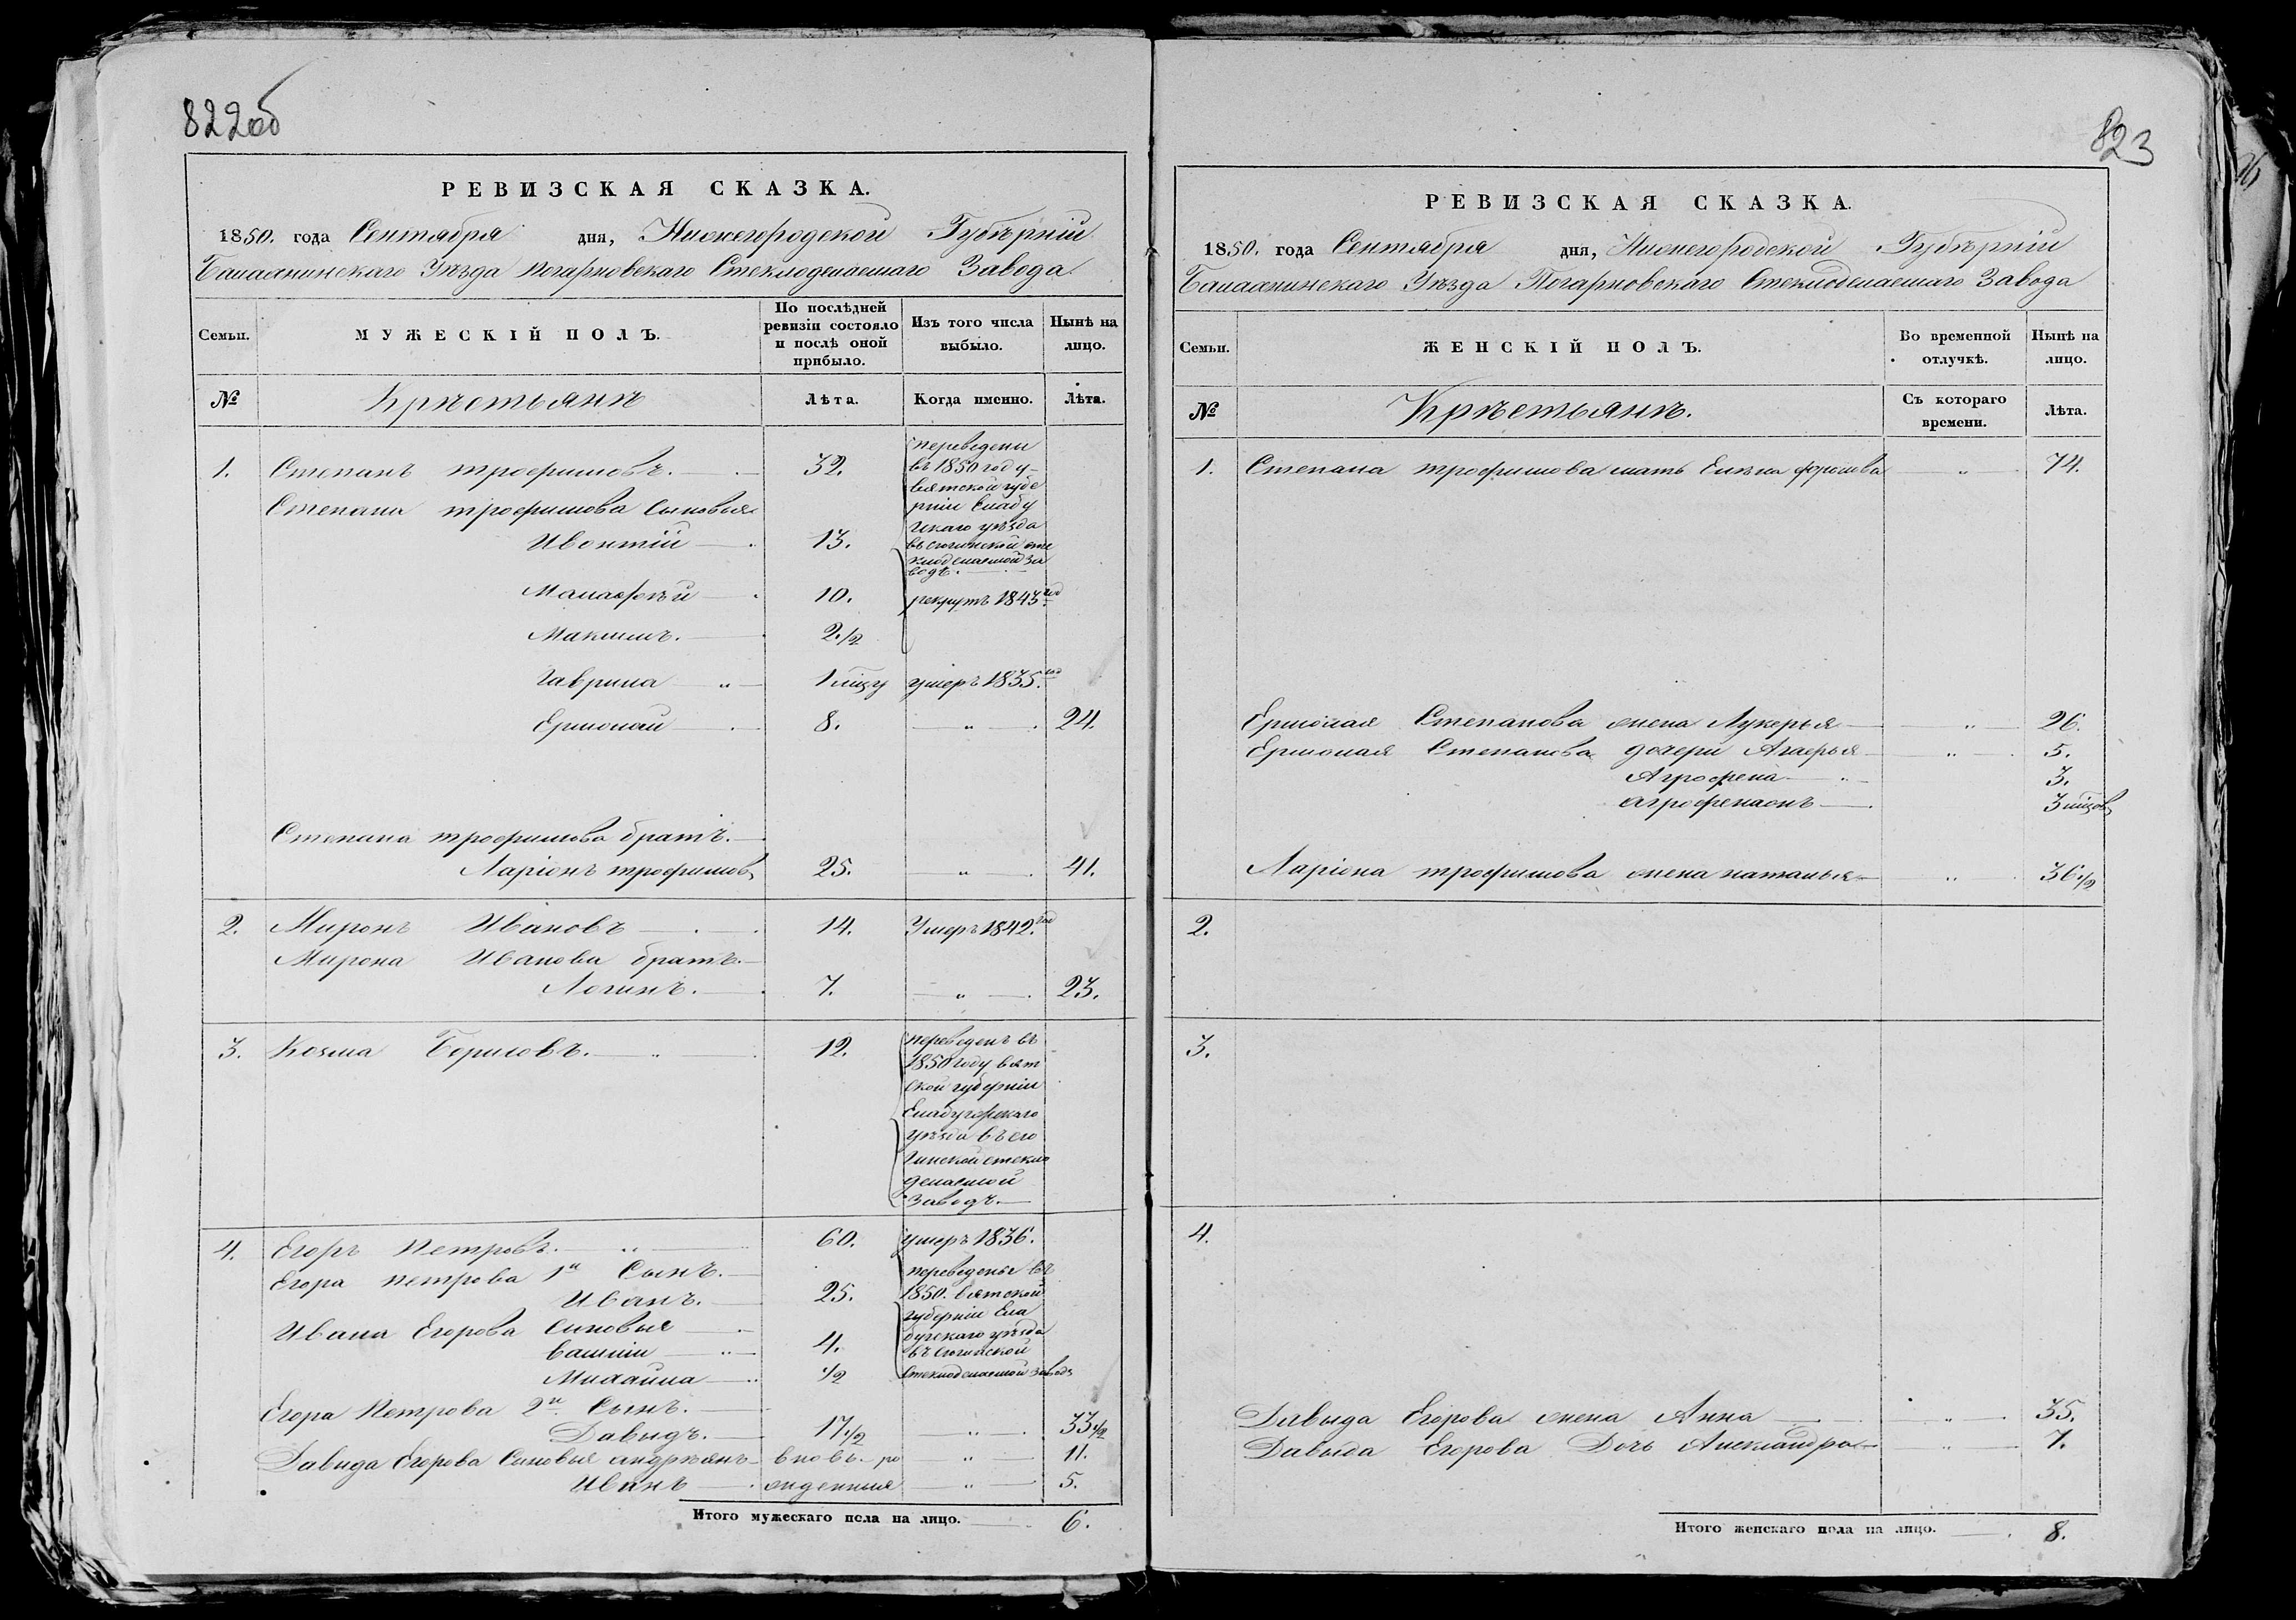 822об
РЕВИЗСКАЯ СКАЗКА.
1850. года Сентября дня, Нижегородской Губѣрніи
Балахнинскаго Уѣзда Погарновскаго Стеклоделаемаго Завода.
Семьи.
МУЖЕСКІЙ ПОЛЪ.
По послѣдней ревизіи состояло и послѣ оной прибыло.
Изъ того числа выбыло.
Нынѣ на лицо.
№
Крѣстьянѣ
Лѣта.
Когда именно.
Лѣта.
1. Степанъ трофимовъ. 32.
переведени
въ 1850 году
вятской губе
рніи Елабу
жкаго уѣзда
въ сюгинской сте
клоделаемой за
водъ.
Степана трофимова сыновья
Ивонтій 13.
Малафѣй 10. рекрутъ 1843 год
Максимъ. 2 1/2
Гаврила 1 мцу умеръ 1835. год
Ермолай 8. „ 24.
Степана трофимова братъ.
Ларіонъ трофимовъ 25. „ 41.
2. Миронъ Ивановъ 14. Умеръ 1842. год
Мирона Иванова братъ.
Логинъ. 7. „ 23.
3. Козма Борисовъ. 12.
переведенъ въ
1850 году вят
ской губерніи
уѣзда въ сю
гинской стекло
делаемой
заводъ.
4. Егоръ Петровъ. 60. умеръ 1836.
Егора петрова 1й Сынъ.
Иванъ. 25.
переведены въ
1850. вятской
губерніи Ела
бускаго уѣзда
въ сюгинской
стеклоделаемой заводъ
Ивана Егорова сыновья
Васили 4.
Михайла 1/2
Егора Петрова 2й Сынъ.
Давыдъ. 17 1/2 „ 33 1/2
Давида Егорова Сыновья андрѣянъ вновь ро „ 11.
Иванъ жденныя „ 5.
Итого мужескаго пола на лицо. 6.
823
РЕВИЗСКАЯ СКАЗКА.
1850. года Сентября дня, Нижегородской Губѣрніи
Балахнинскаго Уѣзда Погарновскаго Стеклоделаемаго Завода
Семьи.
ЖЕНСКІЙ ПОЛЪ.
Во временной отлучкѣ.
Нынѣ на лицо.
№
Крѣстьянѣ.
Съ котораго времени.
Лѣта.
1. Степана трофимова мать Елѣна фролова „ 74.
Ермолая Степанова жена Лукерья „ 26.
Ермолая Степанова дочери Агафья „ 5.
Агрофена „ 3.
3 мцов
Ларіона трофимова жена наталья „ 36 1/2
2.
3.
4.
Давыда Егорова жена Анна „ 35.
Давыда Егорова Дочь Александра „ 7.
Итого женскаго пола на лицо. 8.